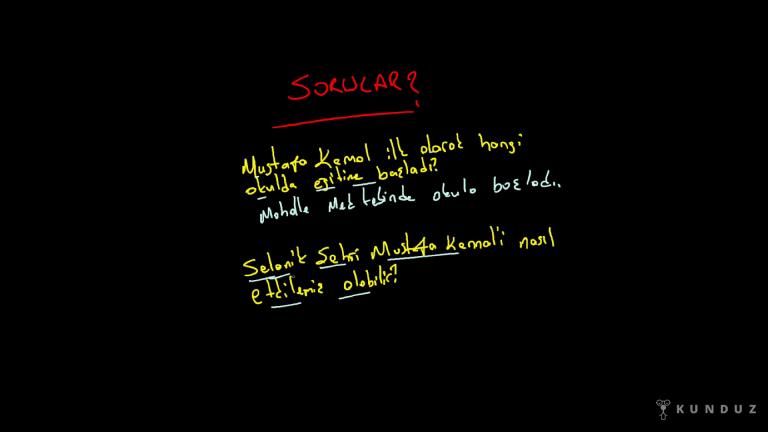 SORULAR?
Mustafa Kemal ilk olarak hangi
okulda eğitime başladı?
Mahalle Mektebinde okula başladı..
Selanik Şehri Mustafa Kemal'i nasıl
etkilemiş olabilir?
KUNDUZ